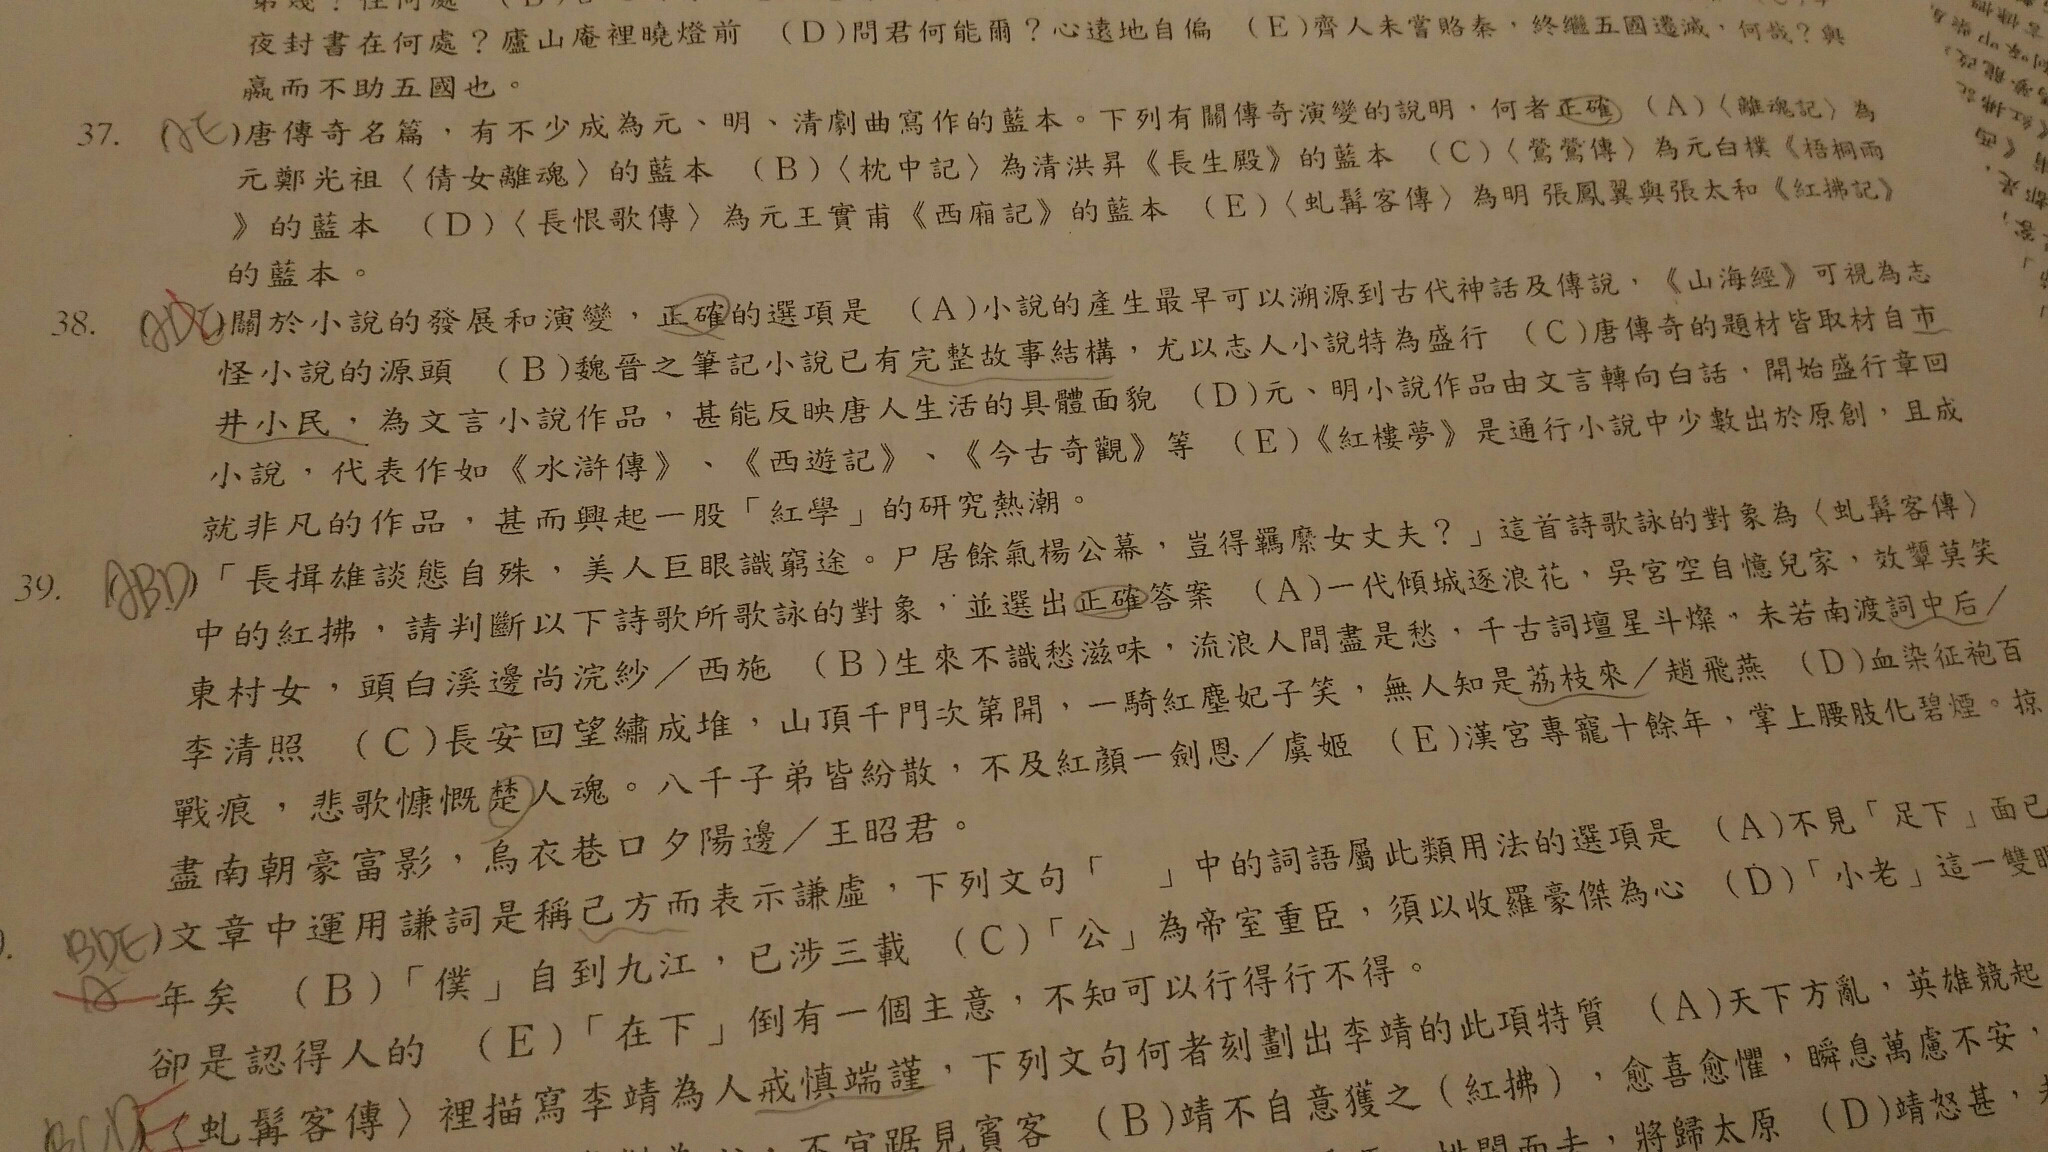 夜封書在何處？廬山庵裡曉燈前 (D)問君何能爾？心遠地自偏 (E)齊人未嘗賂秦，終繼五國遷滅，何哉？與
嬴而不助五國也。
37. AE)唐傳奇名篇，有不少成為元、明、清劇曲寫作的藍本。下列有關傳奇演變的說明，何者正確 (A)〈離魂記〉為
元鄭光祖〈倩女離魂〉的藍本 (B)〈枕中記〉為清洪昇《長生殿》的藍本 (C)〈鶯鶯傳〉為元白樸《梧桐雨
》的藍本 (D)〈長恨歌傳〉為元王實甫《西廂記》的藍本 (E)〈虬髯客傳〉為明張鳳翼與張太和《紅拂記》
的藍本。
38. ADE)關於小說的發展和演變，正確的選項是 (A)小說的產生最早可以溯源到古代神話及傳說，《山海經》可視為志
怪小說的源頭 (B)魏晉之筆記小說已有完整故事結構，尤以志人小說特為盛行 (C)唐傳奇的題材皆取材自市
井小民，為文言小說作品，甚能反映唐人生活的具體面貌 (D)元、明小說作品由文言轉向白話，開始盛行章回
小說，代表作如《水滸傳》、《西遊記》、《今古奇觀》等 (E)《紅樓夢》是通行小說中少數出於原創，且成
就非凡的作品，甚而興起一股「紅學」的研究熱潮。
39. ABD)「長揖雄談態自殊，美人巨眼識窮途。尸居餘氣楊公幕，豈得羈縻女丈夫？」這首詩歌詠的對象為〈虬髯客傳〉
中的紅拂，請判斷以下詩歌所歌詠的對象，並選出正確答案 (A)一代傾城逐浪花，吳宮空自憶兒家，效顰莫笑
東村女，頭白溪邊尚浣紗／西施 (B)生來不識愁滋味，流浪人間盡是愁，千古詞壇星斗燦。未若南渡詞中后／
李清照 (C)長安回望繡成堆，山頂千門次第開，一騎紅塵妃子笑，無人知是荔枝來／趙飛燕 (D)血染征袍百
戰痕，悲歌慷慨楚人魂。八千子弟皆紛散，不及紅顏一劍恩／虞姬 (E)漢宮專寵十餘年，掌上腰肢化碧煙。掠
盡南朝豪富影，烏衣巷口夕陽邊／王昭君。
BDE)文章中運用謙詞是稱己方而表示謙虛，下列文句「 」中的詞語屬此類用法的選項是 (A)不見「足下」面已
年矣 (B)「僕」自到九江，已涉三載 (C)「公」為帝室重臣，須以收羅豪傑為心 (D)「小老」這一雙眼
卻是認得人的 (E)「在下」倒有一個主意，不知可以行得行不得。
〈虬髯客傳〉裡描寫李靖為人戒慎端謹，下列文句何者刻劃出李靖的此項特質 (A)天下方亂，英雄競起
不宜踞見賓客 (B)靖不自意獲之（紅拂），愈喜愈懼，瞬息萬慮不安，
將歸太原 (D)靖怒甚，